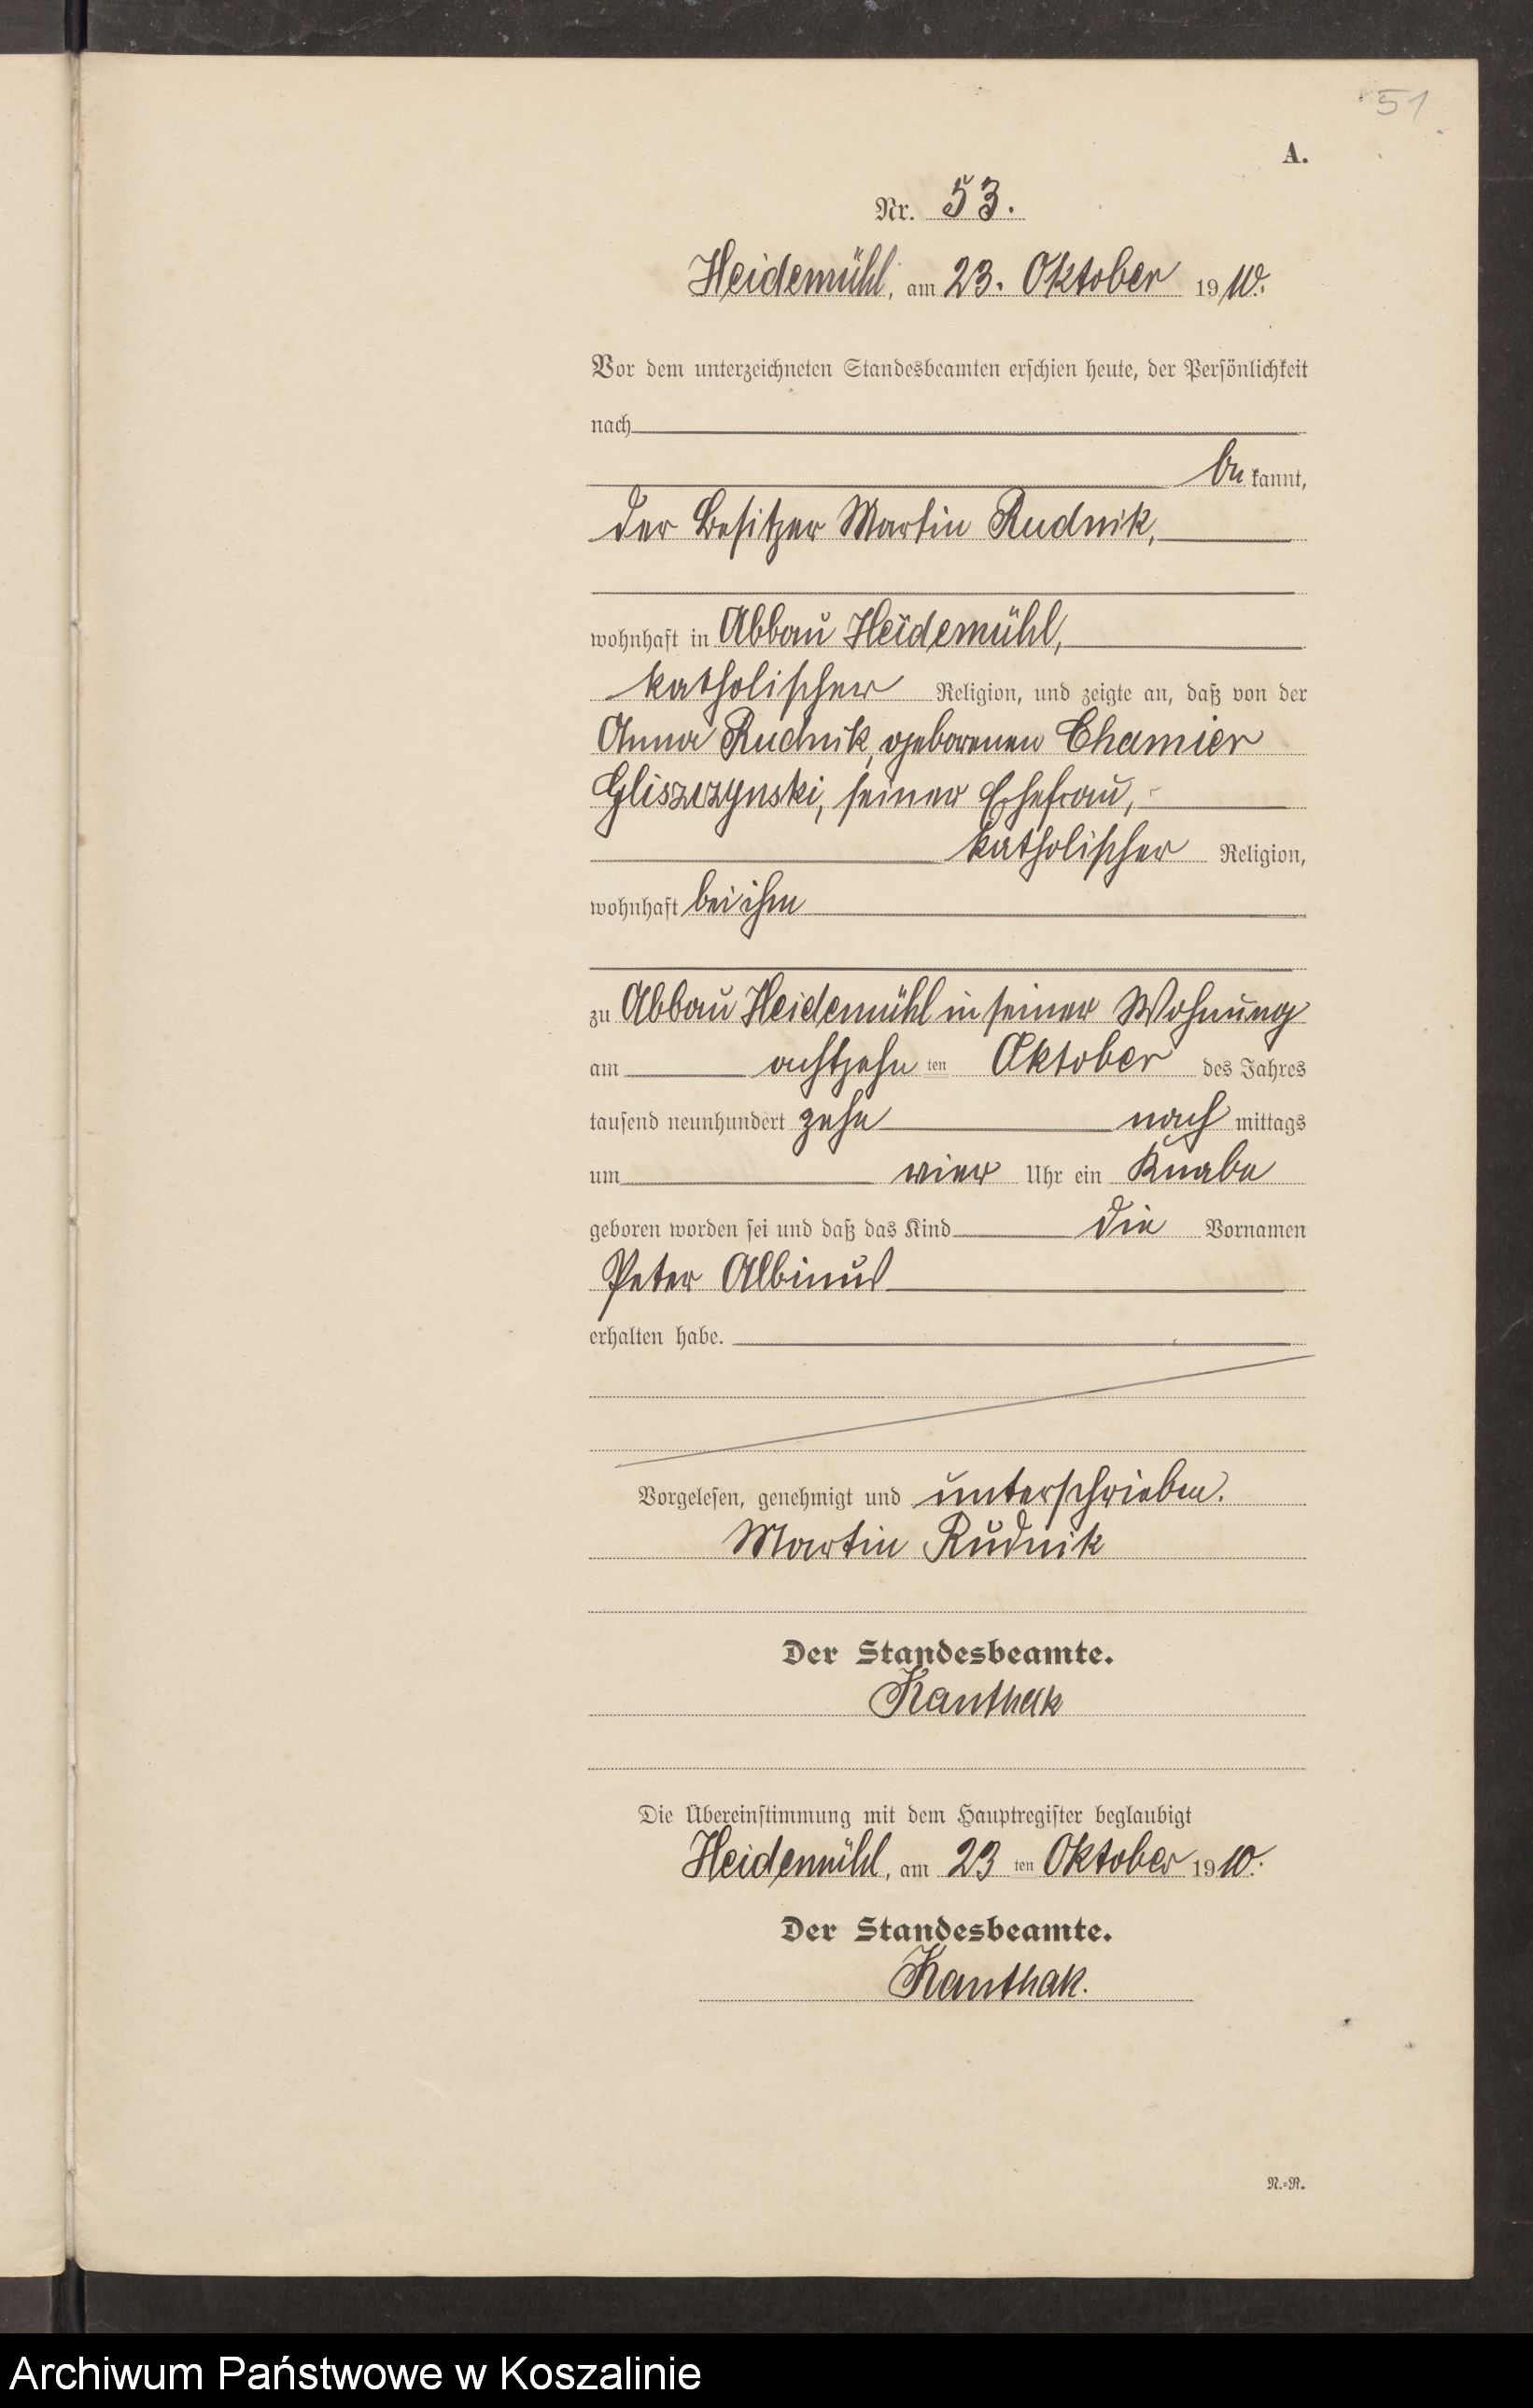 51
A.
Nr. 53.
Heidemühl, am 23. Oktober 1910.
Vor dem unterzeichneten Standesbeamten erschien heute, der Persönlichkeit
nach
be kannt,
der Besitzer Martin Rudnik,
wohnhaft in Abbau Heidemühl,
katholischer Religion, und zeigte an, daß von der
Anna Rudnik, geborenen Chamier
Gliszczynski, seiner Ehefrau,
katholischer Religion,
wohnhaft bei ihm
zu Abbau Heidemühl in seiner Wohnung
am achtzehn ten Oktober des Jahres
tausend neunhundert zehn nach mittags
um vier Uhr ein Knabe
geboren worden sei und daß das Kind die Vornamen
Peter Albinus
erhalten habe.
Vorgelesen, genehmigt und unterschrieben.
Martin Rudnik
Der Standesbeamte.
Kanthak
Die Übereinstimmung mit dem Hauptregister beglaubigt
Heidemühl, am 23 ten Oktober 1910.
Der Standesbeamte.
Kanthak.
N.=R.
Archiwum Państwowe w Koszalinie